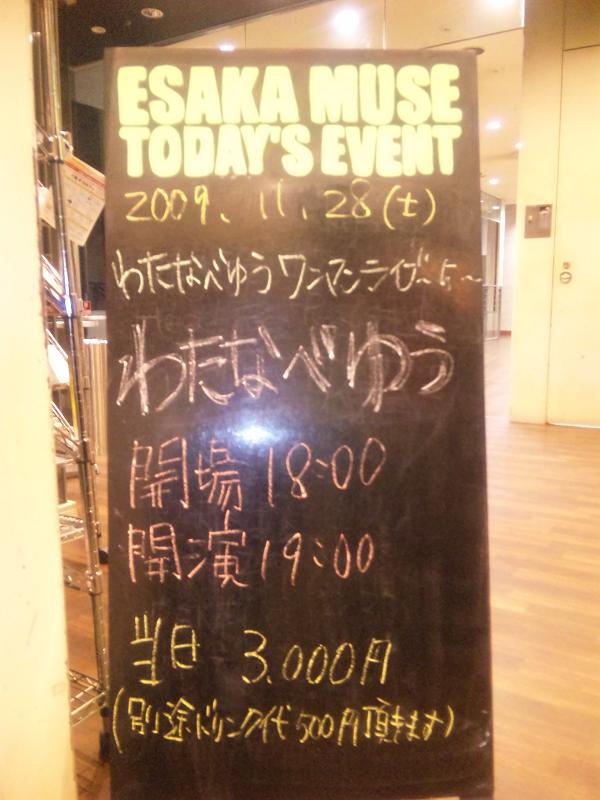 ESAKA MUSE
TODAY'S EVENT
2009.11.28(土)
わたなべゆうワンマンライブ〜5〜
わたなべゆう
開場18:00
開演19:00
当日 3.000円
(別途ドリンク代500円頂きます)